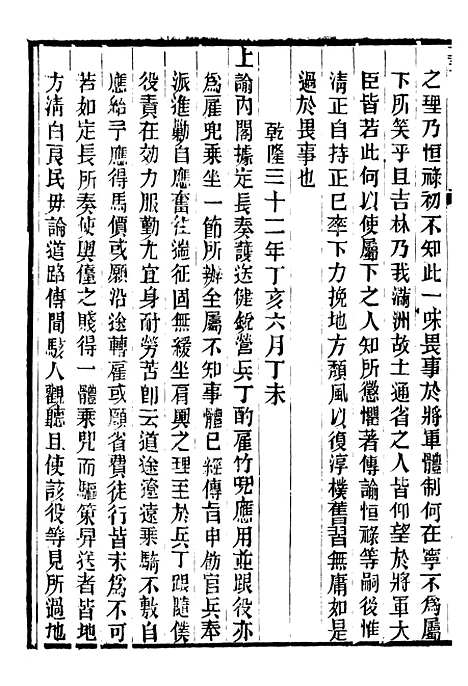 之理乃恒祿初不知此一味畏事於將軍體制何在寧不為屬
下所笑乎且吉林乃我滿洲故土通省之人皆仰望於將軍大
臣皆若此何以使屬下之人知所懲懼著傳諭恒祿等嗣後惟
清正自持正己率下力挽地方頹風以復淳樸舊習無庸如是
過於畏事也
乾隆三十二年丁亥六月丁未
上諭內閣據定長奏護送健銳營兵丁酌雇竹兜應用並跟役亦
為雇兜乘坐一節所辦全屬不知事體已經傳旨申飭官兵奉
派進勦自應奮往遄征固無緩坐肩輿之理至於兵丁跟隨僕
役責在効力服勤尤宜身耐勞苦卽云道途遼遠乘騎不敷自
應給予應得馬價或願沿途轉雇或願省費徒行皆未為不可
若如定長所奏使輿儓之賤得一體乘兜而驅策舁送者皆地
方清白良民毋論道路傳聞駭人觀聽且使該役等見所過地